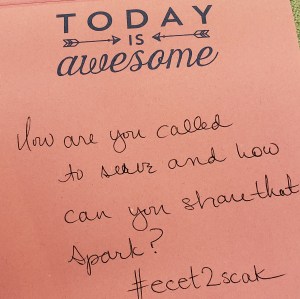 TODAY
IS
awesome
How are you called
to serve and how
can you share that
spark?
#ecet2scak